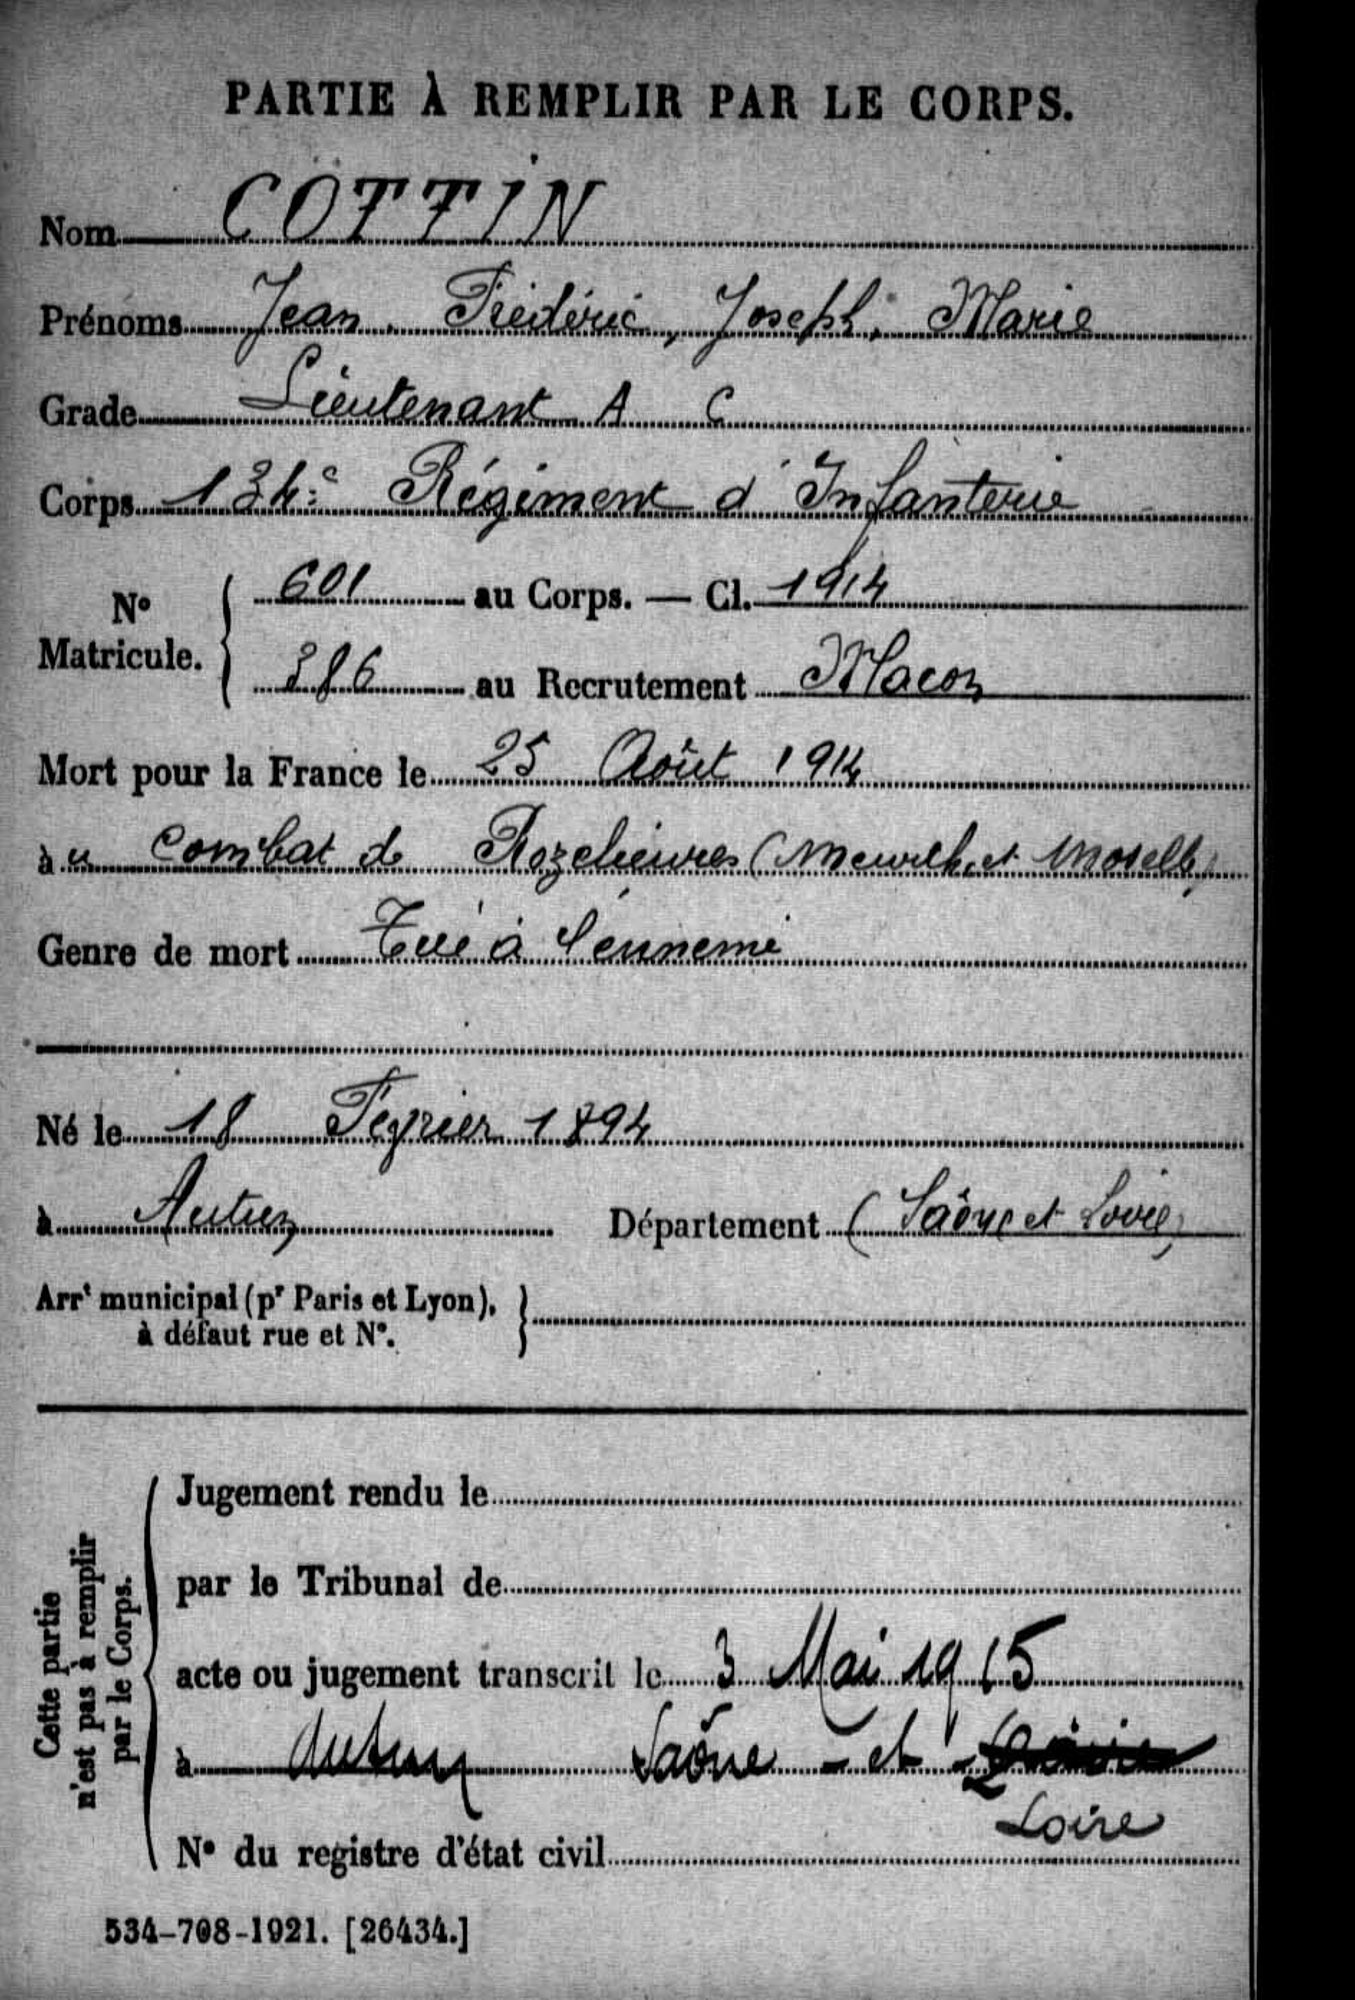 PARTIE À REMPLIR PAR LE CORPS.
Nom COTTIN
Prénoms Jean, Frédéric, Joseph, Marie
Grade Lieutenant A C
Corps 134e Régiment d'Infanterie
N° Matricule. 601 au Corps. — Cl. 1914
386 au Recrutement Macon
Mort pour la France le 25 Août 1914
à u Combat de Rozelieures (Meurth. et Moselle)
Genre de mort Tué à l'ennemi
Né le 18 Février 1894
à Autun Département (Saône et Loire)
Arrt municipal (pr Paris et Lyon),
à défaut rue et N°.
Cette partie n'est pas à remplir par le Corps.
Jugement rendu le
par le Tribunal de
acte ou jugement transcrit le 3 Mai 1915
à Autun Saône-et-
Loire
N° du registre d'état civil
534-708-1921. [26434.]